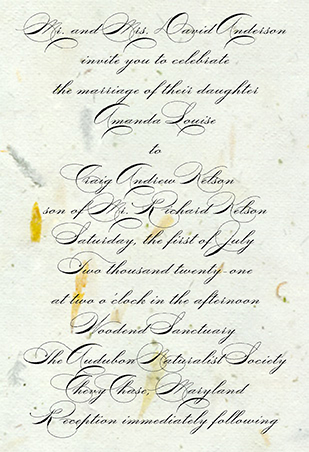 Mr. and Mrs. David Anderson
invite you to celebrate
the marriage of their daughter
Amanda Louise
to
Craig Andrew Nelson
son of Mr. Richard Nelson
Saturday, the first of July
Two thousand twenty-one
at two o'clock in the afternoon
Woodend Sanctuary
The Audubon Naturalist Society
Chevy Chase, Maryland
Reception immediately following